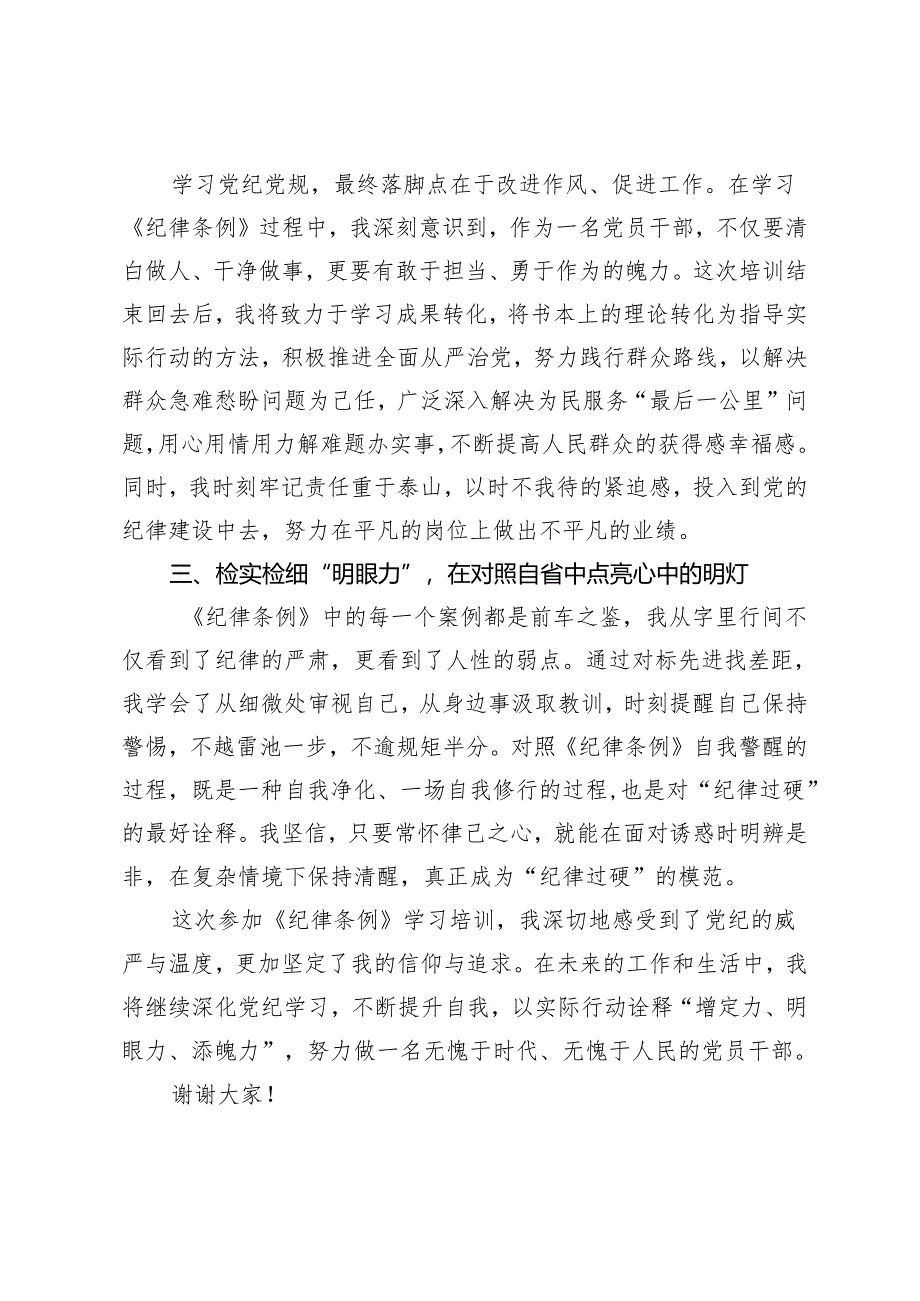 学习党纪党规，最终落脚点在于改进作风、促进工作。在学习
《纪律条例》过程中，我深刻意识到，作为一名党员干部，不仅要清
白做人、干净做事，更要有敢于担当、勇于作为的魄力。这次培训结
束回去后，我将致力于学习成果转化，将书本上的理论转化为指导实
际行动的方法，积极推进全面从严治党，努力践行群众路线，以解决
群众急难愁盼问题为己任，广泛深入解决为民服务“最后一公里”问
题，用心用情用力解难题办实事，不断提高人民群众的获得感幸福感。
同时，我时刻牢记责任重于泰山，以时不我待的紧迫感，投入到党的
纪律建设中去，努力在平凡的岗位上做出不平凡的业绩。
三、检实检细“明眼力”，在对照自省中点亮心中的明灯
《纪律条例》中的每一个案例都是前车之鉴，我从字里行间不
仅看到了纪律的严肃，更看到了人性的弱点。通过对标先进找差距，
我学会了从细微处审视自己，从身边事汲取教训，时刻提醒自己保持
警惕，不越雷池一步，不逾规矩半分。对照《纪律条例》自我警醒的
过程，既是一种自我净化、一场自我修行的过程,也是对“纪律过硬”
的最好诠释。我坚信，只要常怀律己之心，就能在面对诱惑时明辨是
非，在复杂情境下保持清醒，真正成为“纪律过硬”的模范。
这次参加《纪律条例》学习培训，我深切地感受到了党纪的威
严与温度，更加坚定了我的信仰与追求。在未来的工作和生活中，我
将继续深化党纪学习，不断提升自我，以实际行动诠释“增定力、明
眼力、添魄力”，努力做一名无愧于时代、无愧于人民的党员干部。
谢谢大家！